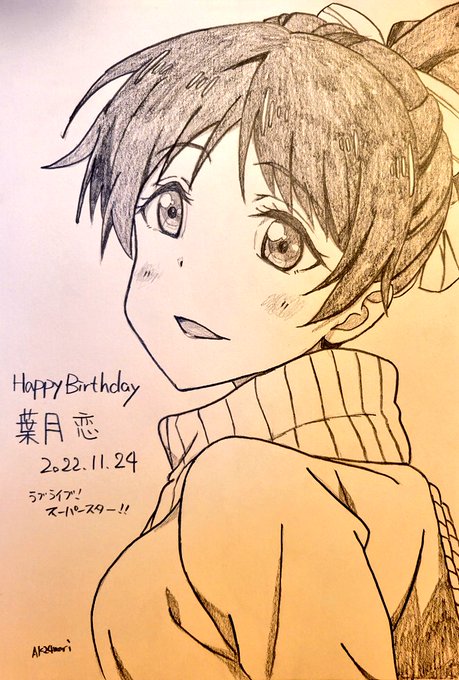 Happy Birthday
葉月 恋
2022.11.24
ラブライブ!
スーパースター!!